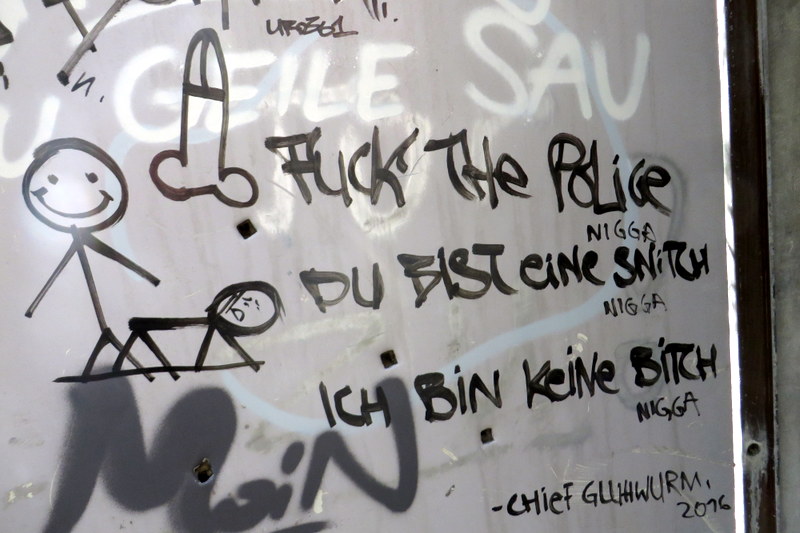 URZ61
GEILE SAU
FUCK THE POLICE
NIGGA
DU BIST EINE SNITCH
NIGGA
ICH BIN KEINE BITCH
NIGGA
MOIN
-CHIEF GLÜHWURM.
2016